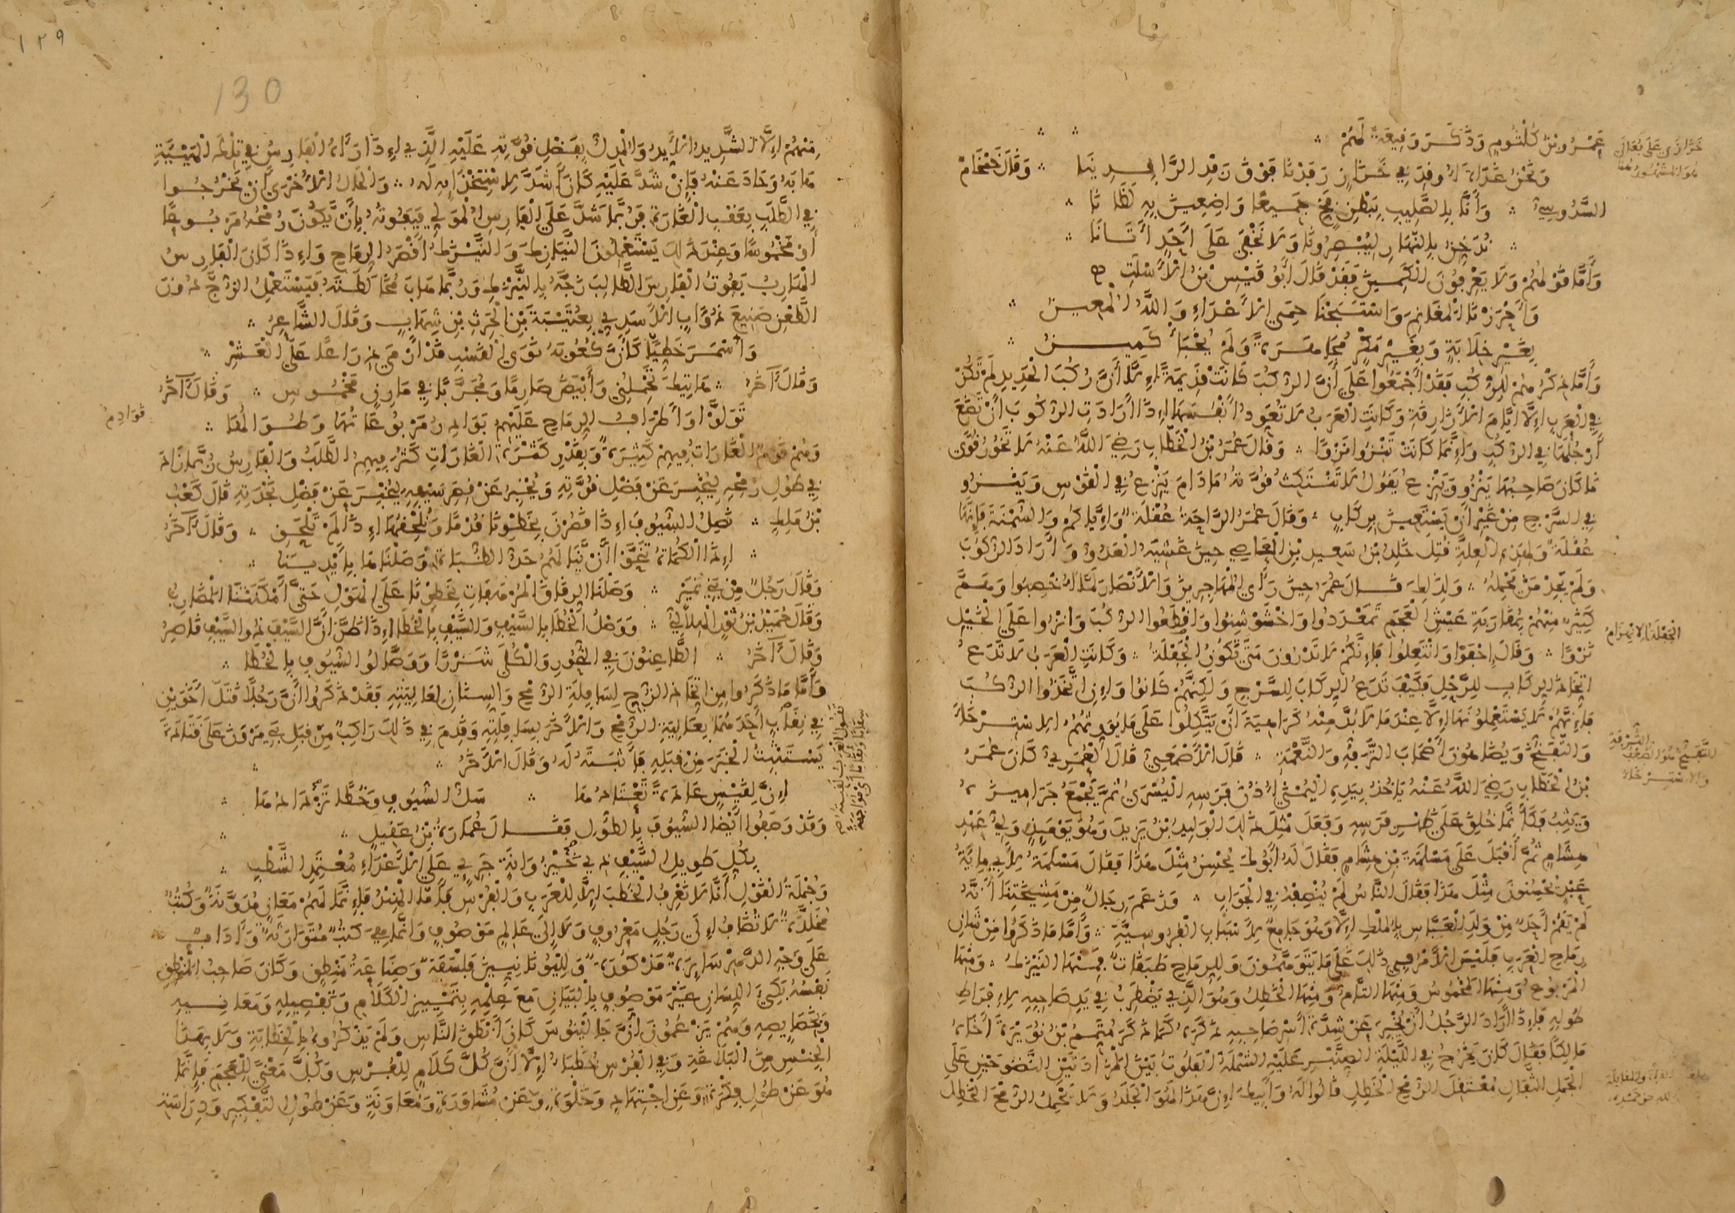 عَمْرُو بْنُ كُلْثُومٍ وَذَكَرَ وَقِيعَةً لَهُمْ
وَنَحْنُ غَدَاةَ أُوقِدَ فِي خَزَازٍ رَفَدْنَا فَوْقَ رَفْدِ الرَّافِدِينَا وَقَالَ خُمْخَامٌ
السَّدُوسِيُّ وَإِنَّا بِالصُّلَيْبِ بِبَطْنِ فَجٍّ جَمِيعًا وَاضِعِينَ بِهِ لَظَانَا
نُدَخِّنُ بِالنَّهَارِ لِيُبْصِرُونَا وَلَا نَخْفَى عَلَى أَحَدٍ أَتَانَا
وَأَمَّا قَوْلُهُمْ وَلَا يَعْرِفُونَ الْكَمِينَ فَقَدْ قَالَ أَبُو قَيْسِ بْنُ الْأَسْلَتِ
وَأَحْرَزْنَا الْمَغَانِمَ وَاسْتَبَحْنَا حِمَى الْأَعْدَاءِ وَاللَّهُ الْمُعِينُ
بِغَيْرِ خِلَابَةٍ وَبِغَيْرِ مَكْرٍ مُجَاهَرَةً وَلَمْ يُخْبَأْ كَمِينُ
وَأَمَّا ذِكْرُهُمْ لِلرُّكُبِ فَقَدْ أَجْمَعُوا عَلَى أَنَّ الرُّكُبَ كَانَتْ قَدِيمَةً إِلَّا أَنَّ رُكُبَ الْحَدِيدِ لَمْ تَكُنْ
فِي الْعَرَبِ إِلَّا أَيَّامَ الْأَزَارِقَةِ وَكَانَتِ الْعَرَبُ لَا تُعَوِّدُ أَنْفُسَهَا إِذَا أَرَادَتِ الرُّكُوبَ أَنْ تَضَعَ
أَرْجُلَهَا فِي الرُّكُبِ وَإِنَّمَا كَانَتْ تَنْزُو نَزْوًا وَقَالَ عُمَرُ بْنُ الْخَطَّابِ رَضِيَ اللَّهُ عَنْهُ لَا تَخُورُ قُوًى
مَا كَانَ صَاحِبُهَا يَنْزُو وَيَنْزِعُ يَقُولُ لَا تَنْتَكِثُ قُوَّتُهُ مَا دَامَ يَنْزِعُ فِي الْقَوْسِ وَيَنْزُو
فِي السَّرْجِ مِنْ غَيْرِ أَنْ يَسْتَعِينَ بِرِكَابٍ وَقَالَ عُمَرُ الرَّاحَةُ عُقْلَةٌ وَإِيَّاكُمْ وَالسُّمْنَةَ فَإِنَّهَا
عُقْلَةٌ وَلِهَذِهِ الْعِلَّةِ قُتِلَ خَلِدُ بْنُ سَعِيدِ بْنِ الْعَاصِي حِينَ غَشِيَهُ الْعَدُوُّ وَأَرَادَ الرُّكُوبَ
وَلَمْ يَجِدْ مَنْ يَحْمِلُهُ وَلِذَلِكَ قَالَ عُمَرُ حِينَ رَأَى الْمُهَاجِرِينَ وَالْأَنْصَارَ لَمَّا أَخْصَبُوا وَهَمَّ
كَثِيرٌ مِنْهُمْ بِمُقَارَبَةِ عَيْشِ الْعَجَمِ تَمَعْدَدُوا وَاخْشَوْشِنُوا وَاقْطَعُوا الرُّكُبَ وَانْزُوا عَلَى الْخَيْلِ
نَزْوًا وَقَالَ احْفَوْا وَانْتَعِلُوا فَإِنَّكُمْ لَا تَدْرُونَ مَتَى تَكُونُ الْجَفْلَةُ وَكَانَتِ الْعَرَبُ لَا تَدَعُ
اتِّخَاذَ الرِّكَابِ لِلرَّحْلِ فَكَيْفَ تَدَعُ الرِّكَابَ لِلسَّرْجِ وَلَكِنَّهُمْ كَانُوا وَإِنِ اتَّخَذُوا الرُّكُبَ
فَإِنَّهُمْ لَا يَسْتَعْمِلُونَهَا إِلَّا عِنْدَ مَا لَا بُدَّ مِنْهُ كَرَاهِيَةَ أَنْ يَتَّكِلُوا عَلَى مَا يُورِثُهُمُ الِاسْتِرْخَاءَ
وَالتَّفَتُّحَ وَيُضَاهُونَ أَصْحَابَ التَّرَفُّهِ وَالنَّعْمَةِ قَالَ الْأَصْمَعِيُّ قَالَ الْعُمَرِيُّ كَانَ عُمَرُ
بْنُ الْخَطَّابِ رَضِيَ اللَّهُ عَنْهُ يَأْخُذُ بِيَدِهِ الْيُمْنَى أُذُنَ فَرَسِهِ الْيُسْرَى ثُمَّ يَجْمَعُ جَرَامِيزَهُ
وَيَثِبُ فَكَأَنَّمَا خُلِقَ عَلَى ظَهْرِ فَرَسِهِ وَفَعَلَ مِثْلَ ذَلِكَ الْوَلِيدُ بْنُ يَزِيدَ وَهُوَ يَوْمَئِذٍ وَلِيُّ عَهْدِ
هِشَامٍ ثُمَّ أَقْبَلَ عَلَى مَسْلَمَةَ بْنِ هِشَامٍ فَقَالَ لَهُ أَبُوكَ يُحْسِنُ مِثْلَ هَذَا فَقَالَ مَسْلَمَةُ لِأَبِي مِائَةُ
عَبْدٍ يُحْسِنُونَ مِثْلَ هَذَا فَقَالَ النَّاسُ لَمْ يُنْصِفْهُ فِي الْجَوَابِ وَزَعَمَ رِجَالٌ مِنْ مَشْيَخَتِنَا أَنَّهُ
لَمْ يَقُمْ أَحَدٌ مِنْ وَلَدِ الْعَبَّاسِ بِالْمُلْكِ إِلَّا وَهُوَ جَامِعٌ لِأَسْبَابِ الْفُرُوسِيَّةِ وَأَمَّا مَا ذَكَرُوا مِنْ شَأْنِ
رِمَاحِ الْعَرَبِ فَلَيْسَ الْأَمْرُ فِي ذَلِكَ عَلَى مَا يَتَوَهَّمُونَ وَلِلرِّمَاحِ طَبَقَاتٌ فَمِنْهَا النَّيْزَكُ وَمِنْهَا
الْمَرْبُوعُ وَمِنْهَا الْمَخْمُوسُ وَمِنْهَا التَّامُّ وَمِنْهَا الْخَطِلُ وَهُوَ الَّذِي يَضْطَرِبُ فِي يَدِ صَاحِبِهِ لِإِفْرَاطِ
طُولِهِ فَإِذَا أَرَادَ الرَّجُلُ أَنْ يُخْبِرَ عَنْ شِدَّةِ أَسْرِ صَاحِبِهِ ذَكَرَهُ كَمَا ذَكَرَ مُتَمِّمُ بْنُ نُوَيْرَةَ أَخَاهُ
مَالِكًا فَقَالَ كَانَ يَخْرُجُ فِي اللَّيْلَةِ الصِّنَّبْرِ عَلَيْهِ الشَّمْلَةُ الْفَلُوتُ بَيْنَ الْمَزَادَتَيْنِ النَّضُوحَيْنِ عَلَى
الْجَمَلِ الثَّفَالِ مُعْتَقِلَ الرُّمْحِ الْخَطِلِ قَالُوا لَهُ وَأَبِيكَ إِنَّ هَذَا لَهُوَ الْجَلَدُ وَلَا يَحْمِلُ الرُّمْحَ الْخَطِلَ
130
١٢٩
مِنْهُمْ إِلَّا الشَّدِيدُ الْأَيْدِ وَالْمُدِلُّ بِفَضْلِ قُوَّتِهِ عَلَيْهِ الَّذِي إِذَا رَآهُ الْفَارِسُ فِي تِلْكَ الْهَيْئَةِ
هَابَهُ وَحَادَ عَنْهُ فَإِنْ شَدَّ عَلَيْهِ كَانَ أَشَدَّ لِاسْتِخْذَائِهِ لَهُ وَالْحَالُ الْأُخْرَى أَنْ يَخْرُجُوا
فِي الطَّلَبِ بِعَقِبِ الْغَارَةِ فَرُبَّمَا شَدَّ عَلَى الْفَارِسِ الْمُوَلِّي فَيَفُوتُهُ بِأَنْ يَكُونَ رُمْحُهُ مَرْبُوعًا
أَوْ مَخْمُوسًا وَعِنْدَ ذَلِكَ يَسْتَعْمِلُونَ النَّيَازِكَ وَالنَّيْزَكُ أَقْصَرُ الرِّمَاحِ وَإِذَا كَانَ الْفَارِسُ
الْهَارِبُ يَفُوتُ الْفَارِسَ الطَّالِبَ زَجَّهُ بِالنَّيْزَكِ وَرُبَّمَا هَابَ مُخَالَطَتَهُ فَيَسْتَعْمِلُ الزَّجَّ دُونَ
الطَّعْنِ صَنِيعَ ذُؤَابٍ الْأَسَدِيِّ بِعُتَيْبَةَ بْنِ الْحَرِثِ بْنِ شِهَابٍ وَقَالَ الشَّاعِرُ
وَأَسْمَرَ خَطِّيًّا كَأَنَّ كُعُوبَهُ نَوَى الْقَسْبِ قَدْ أَرْمَى ذِرَاعًا عَلَى الْعَشْرِ
وَقَالَ آخَرُ هَاتِيكَ تَحْمِلُنِي وَأَبْيَضُ صَارِمًا وَمُحَرَّبًا فِي مَارِنٍ مَخْمُوسِ وَقَالَ آخَرُ
تَوَلَّوْا وَأَطْرَافُ الرِّمَاحِ عَلَيْهِمُ بَوَادِنُ مَرْبُوعَاتُهَا وَطُوَالُهَا
وَهُمْ قَوْمٌ الْغَارَاتُ فِيهِمْ كَثِيرَةٌ وَبِقَدْرِ كَثْرَةِ الْغَارَاتِ كَثُرَ فِيهِمُ الطَّلَبُ وَالْفَارِسُ رُبَّمَا زَادَ
فِي طُولِ رُمْحِهِ لِيُخْبِرَ عَنْ فَضْلِ قُوَّتِهِ وَيُخْبِرُ عَنْ قِصَرِ سَيْفِهِ لِيُخْبِرَ عَنْ فَضْلِ نَجْدَتِهِ قَالَ كَعْبُ
بْنُ مَلِكٍ نَصِلُ السُّيُوفَ إِذَا قَصُرْنَ بِخَطْوِنَا قُدْمًا وَنُلْحِقُهَا إِذَا لَمْ تَلْحَقِ وَقَالَ آخَرُ
إِذَا الْكُمَاةُ تَنَحَّوْا أَنْ يَنَالَهُمُ حَدُّ الظُّبَاةِ وَصَلْنَاهَا بِأَيْدِينَا
وَقَالَ رَجُلٌ مِنْ بَنِي نُمَيْرٍ وَصَلْنَا الرِّقَاقَ الْمُرْهَفَاتِ بِخَطْوِنَا عَلَى الْهَوْلِ حَتَّى أَمْكَنَتْنَا الْمَضَارِبُ
وَقَالَ حُمَيْدُ بْنُ ثَوْرٍ الْهِلَالِيُّ وَوَصْلُ الْخُطَا بِالسَّيْفِ وَالسَّيْفِ بِالْخُطَا إِذَا ظَنَّ أَنَّ السَّيْفَ ذُو السَّيْفِ قَاصِرُ
وَقَالَ آخَرُ الطَّاعِنُونَ فِي النُّحُورِ وَالْكُلَى شَزْرًا وَوَصَّالُوا السُّيُوفِ بِالْخُطَا
وَأَمَّا مَا ذَكَرُوا مِنَ اتِّخَاذِ الزُّجِّ لِسَافِلَةِ الرُّمْحِ وَالسِّنَانِ لِعَالِيَتِهِ فَقَدْ ذَكَرُوا أَنَّ رَجُلًا قَتَلَ أَخَوَيْنِ
فِي نِقَابٍ أَحَدَهُمَا بِعَالِيَةِ الرُّمْحِ وَالْآخَرَ بِسَافِلَتِهِ وَقَدِمَ فِي ذَلِكَ رَاكِبٌ مِنْ قِبَلِ بَنِي مَرْوَنَ عَلَى قَتَادَةَ
يَسْتَثْبِتُ الْخَبَرَ مِنْ قِبَلِهِ فَأَثْبَتَهُ لَهُ وَقَالَ الْآخَرُ
إِنَّ لِقَيْسٍ عَادَةً تَعْتَادُهَا سَلَّ السُّيُوفِ وَخُطًى تَزْدَادُهَا
وَقَدْ وَصَفُوا أَيْضًا السُّيُوفَ بِالطُّولِ فَقَالَ عُمَارَةُ بْنُ عَقِيلٍ
بِكُلِّ طَوِيلِ السَّيْفِ ذِي خَيْزُرَانَةٍ جَرِيٍّ عَلَى الْأَعْدَاءِ مُعْتَمِدِ الشَّطْبِ
وَجُمْلَةُ الْقَوْلِ أَنَّا لَا نَعْرِفُ الْخُطَبَ إِلَّا لِلْعَرَبِ وَالْفُرْسِ فَأَمَّا الْهِنْدُ فَإِنَّمَا لَهُمْ مَعَانٍ مُدَوَّنَةٌ وَكُتُبٌ
مُخَلَّدَةٌ لَا تُضَافُ إِلَى رَجُلٍ مَعْرُوفٍ وَلَا إِلَى عَالِمٍ مَوْصُوفٍ وَإِنَّمَا هِيَ كُتُبٌ مُتَوَارَثَةٌ وَآدَابٌ
عَلَى وَجْهِ الدَّهْرِ سَائِرَةٌ مَذْكُورَةٌ وَلِلْيُونَانِيِّينَ فَلْسَفَةٌ وَصِنَاعَةُ مَنْطِقٍ وَكَانَ صَاحِبُ الْمَنْطِقِ
نَفْسُهُ بَكِيَّ اللِّسَانِ غَيْرَ مَوْصُوفٍ بِالْبَيَانِ مَعَ عِلْمِهِ بِتَمْيِيزِ الْكَلَامِ وَتَفْصِيلِهِ وَمَعَانِيهِ
وَبِخَصَائِصِهِ وَهُمْ يَزْعُمُونَ أَنَّ جَالِينُوسَ كَانَ أَنْطَقَ النَّاسِ وَلَمْ يَذْكُرُوهُ بِالْخِطَابَةِ وَلَا بِهَذَا
الْجِنْسِ مِنَ الْبَلَاغَةِ وَفِي الْفُرْسِ خُطَبَاءُ إِلَّا أَنَّ كُلَّ كَلَامٍ لِلْفُرْسِ وَكُلَّ مَعْنًى لِلْعَجَمِ فَإِنَّمَا
هُوَ عَنْ طُولِ فِكْرَةٍ وَعَنِ اجْتِهَادٍ وَخَلْوَةٍ وَعَنْ مُشَاوَرَةٍ وَمُعَاوَنَةٍ وَعَنْ طُولِ التَّفْكِيرِ وَدِرَاسَةِ